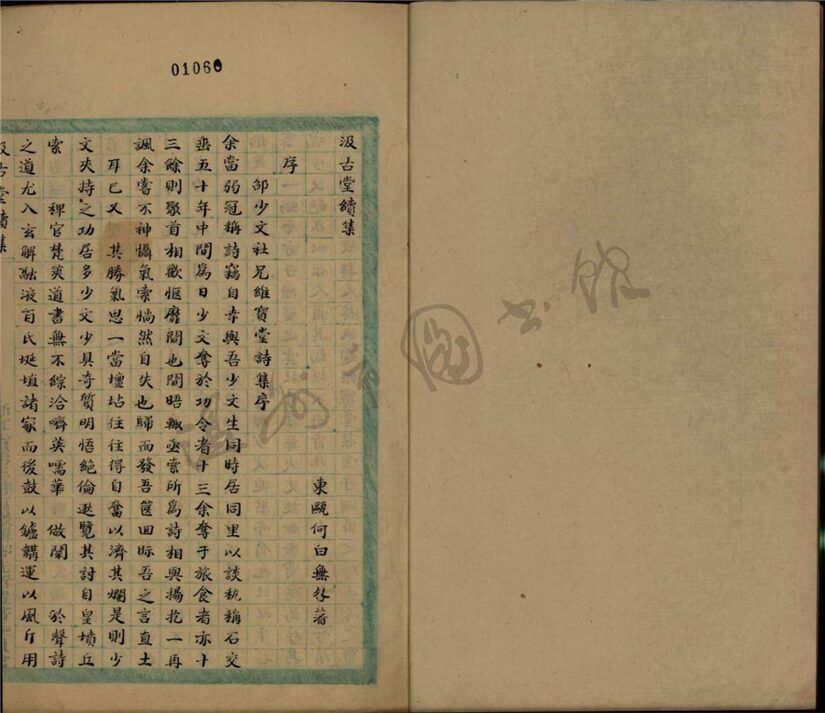 01066
汲古堂續集
序
東甌何白無咎著
邵少文社兄維寶堂詩集序
余當弱冠稱詩竊自幸與吾少文生同時居同里以談執稱石交
垂五十年中間為日少文奪於功令者十三余奪于旅食者亦十
三餘則聚首相歡愜靡間也間晤輒亟索所為詩相與揚扢一再
諷余嘗不神懾氣索惝然自失也歸而發吾篋回眎吾之言直土
耳已又 其勝氣思一當壇坫往往得自奮以濟其爛是則少
文夾持之功居多少文少具奇質明悟絕倫遐覽其討自皇墳丘
索 稗官梵筴道書無不綜洽嚌英嚅華 倣闌 於聲詩
之道尤入玄解融液百氏埏埴諸家而後鼓以鑪韛運以風斤用
汲古堂續集
圖書館